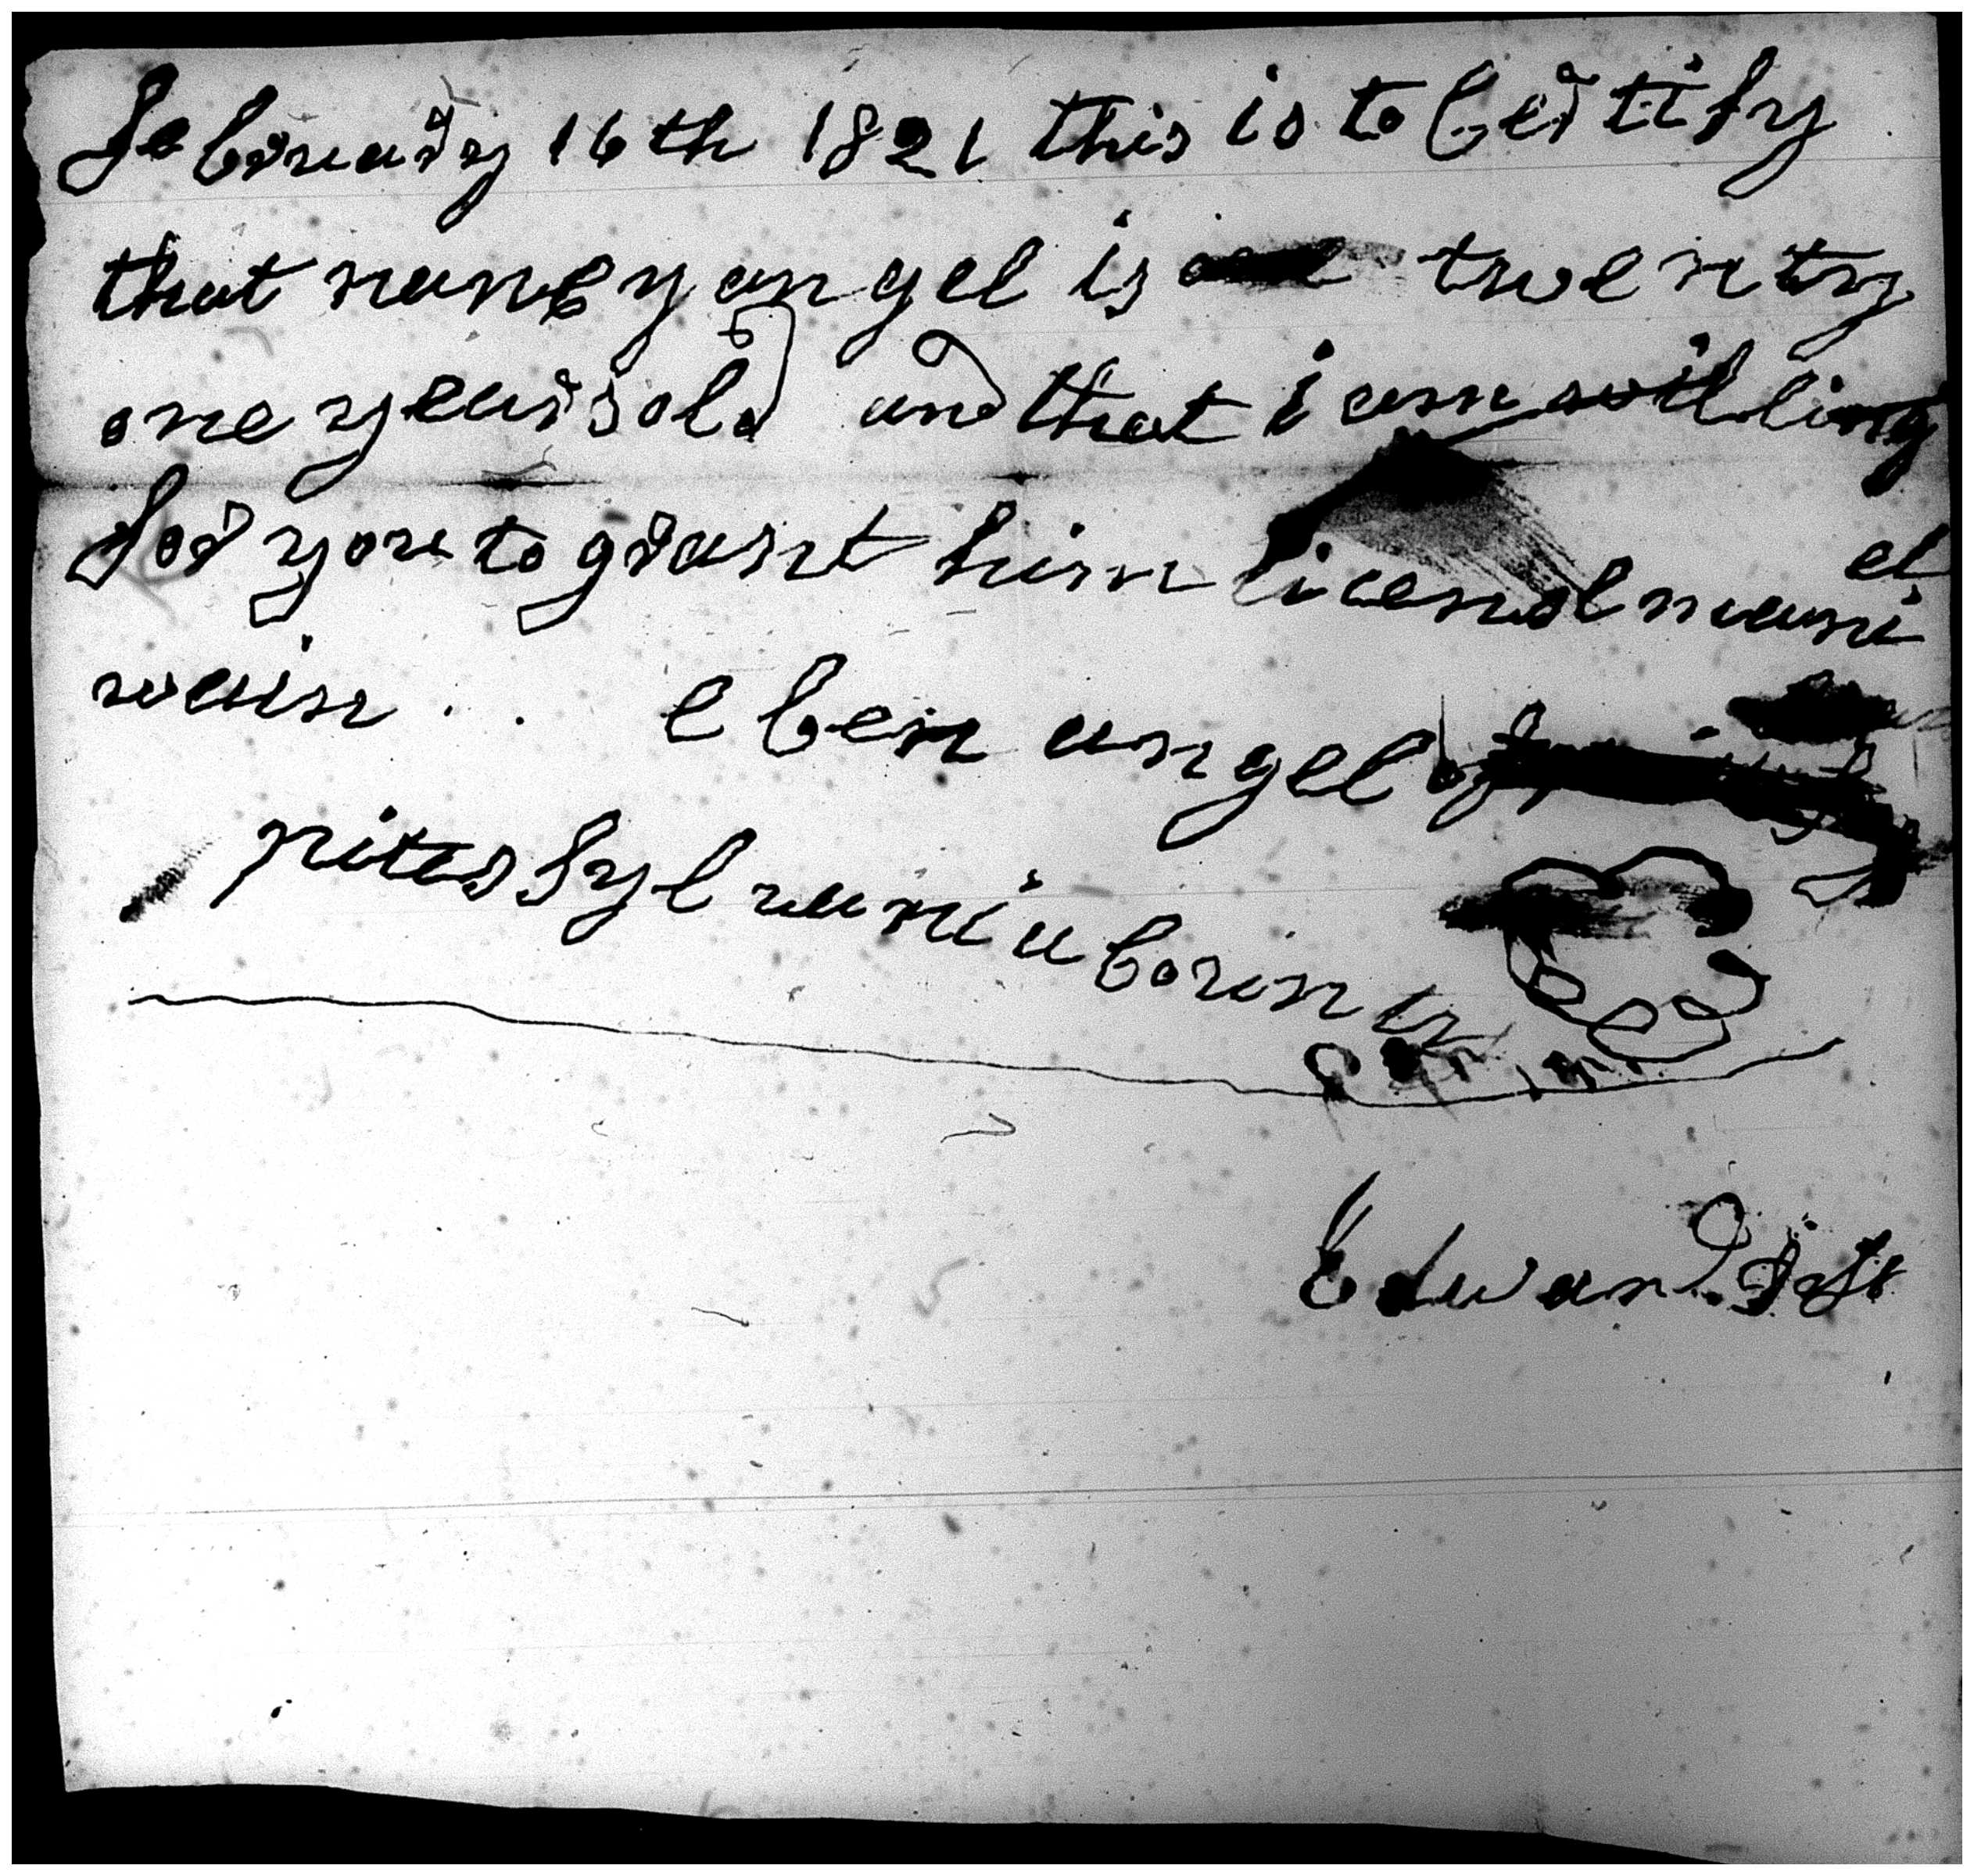 february 16th 1821 this is to certify
that nancy angel is twenty
one years old and that i am willing
for you to grant him licensel mani el
wain
eben angel of
pitessylvania counnty
Edward